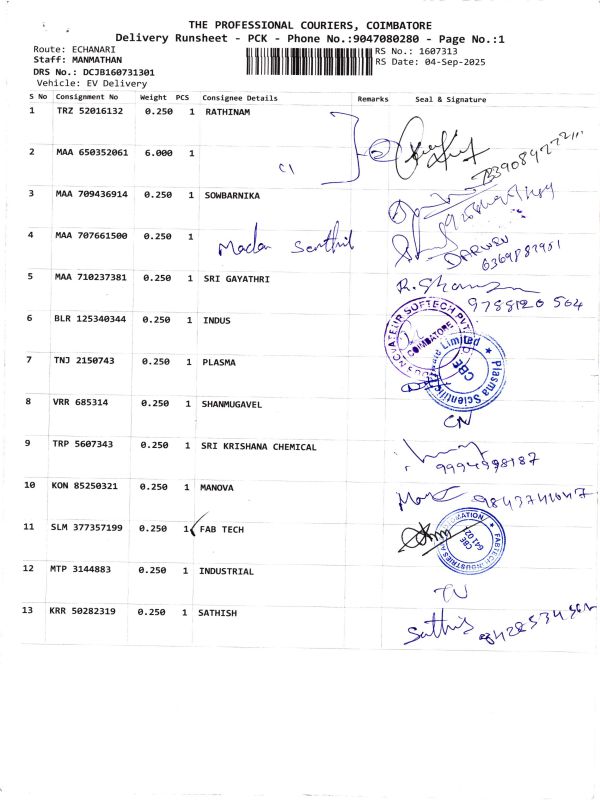 THE PROFESSIONAL COURIERS, COIMBATORE
Delivery Runsheet - PCK - Phone No.:9047080280 - Page No.:1
Route: ECHANARI
RS No.: 1607313
Staff: MANMATHAN
RS Date: 04-Sep-2025
DRS No.: DCJB160731301
Vehicle: EV Delivery
S No Consignment No Weight PCS Consignee Details Remarks Seal & Signature
1 TRZ 52016132 0.250 1 RATHINAM
2 MAA 650352061 6.000 1
3 MAA 709436914 0.250 1 SOWBARNIKA
4 MAA 707661500 0.250 1 Madan Senthil
DARWIN
5 MAA 710237381 0.250 1 SRI GAYATHRI
9788120 564
6 BLR 125340344 0.250 1 INDUS
COIMBATORE
7 TNJ 2150743 0.250 1 PLASMA
Plasma Scientific
CBE
8 VRR 685314 0.250 1 SHANMUGAVEL
9 TRP 5607343 0.250 1 SRI KRISHANA CHEMICAL
9994998187
10 KON 85250321 0.250 1 MANOVA
11 SLM 377357199 0.250 1 FAB TECH
FABTECH INDUSTRIES
CBE
12 MTP 3144883 0.250 1 INDUSTRIAL
13 KRR 50282319 0.250 1 SATHISH
Sathis